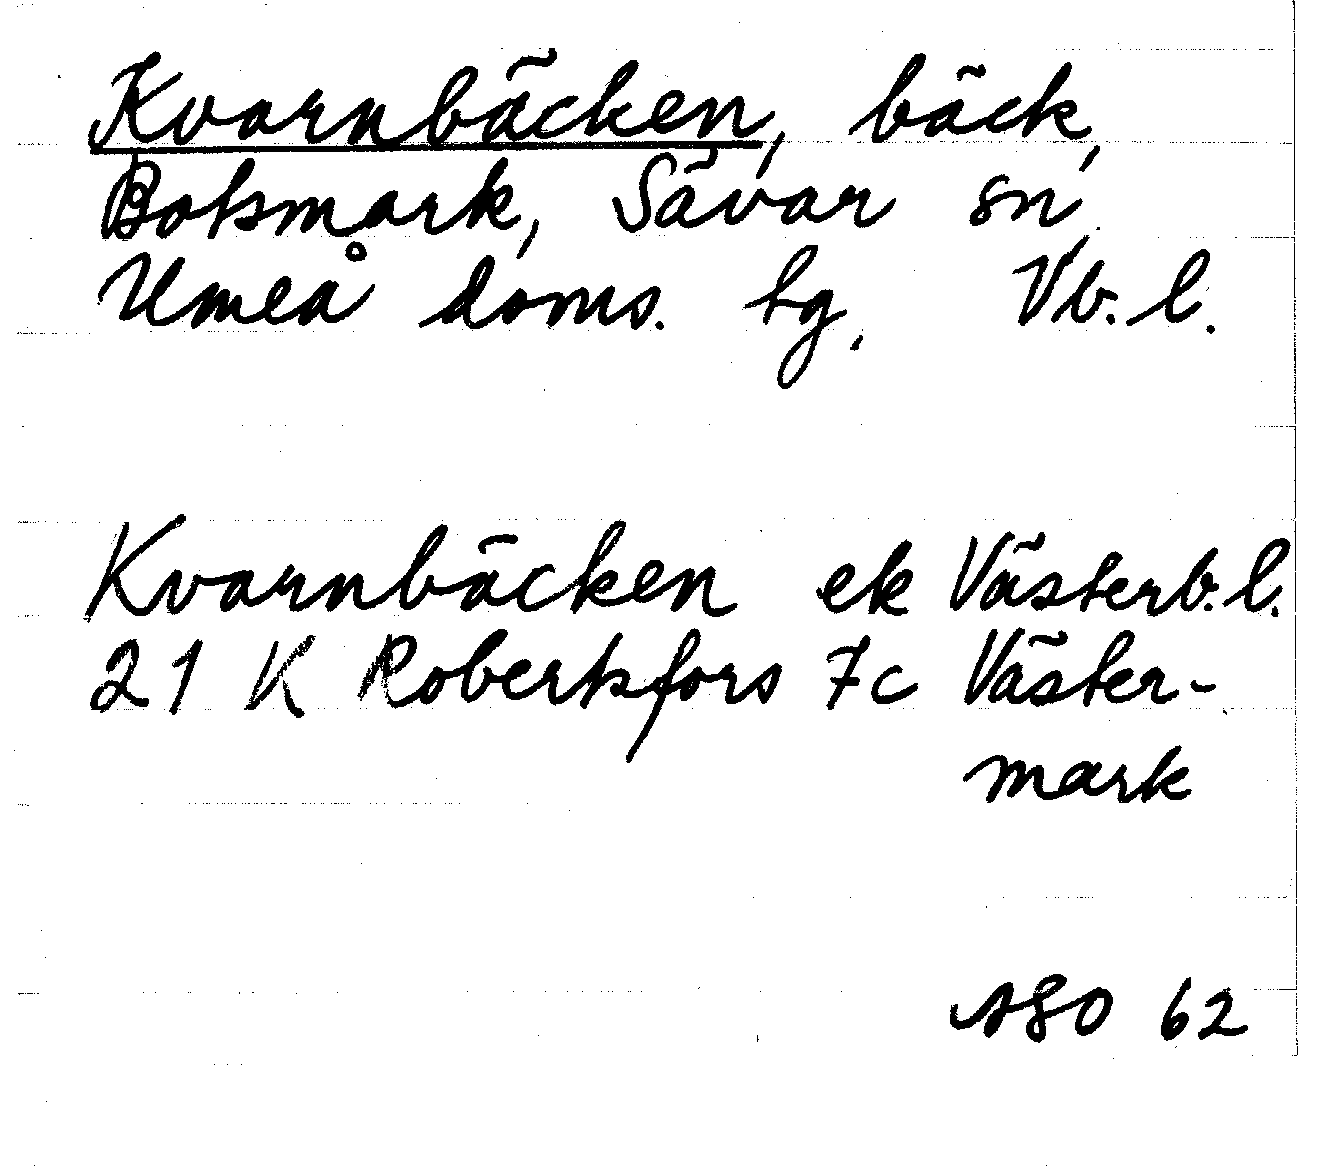 Kvarnbäcken, bäck,
Botsmark, Sävar sn
Umeå doms. hg, Vb. l.
Kvarnbäcken ek Västerb. l.
21 K Robertsfors 7c Väster-
mark
ASO 62